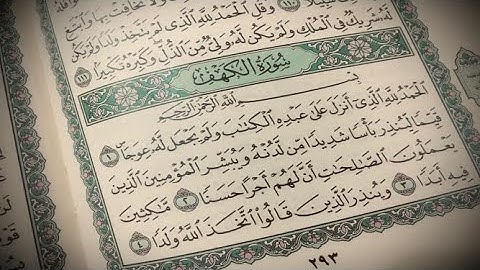 تُخَافِتْ بِهَا وَٱبْتَغِ
وَقُلِ ٱلْحَمْدُ لِلَّهِ ٱلَّذِى لَمْ يَتَّخِذْ وَلَدًا وَلَمْ يَكُن
لَّهُۥ شَرِيكٌ فِى ٱلْمُلْكِ وَلَمْ يَكُن لَّهُۥ وَلِىٌّ مِّنَ ٱلذُّلِّ وَكَبِّرْهُ تَكْبِيرًۢا ١١١
سُورَةُ الكَهْفِ
بِسْمِ ٱللَّهِ ٱلرَّحْمَٰنِ ٱلرَّحِيمِ
ٱلْحَمْدُ لِلَّهِ ٱلَّذِىٓ أَنزَلَ عَلَىٰ عَبْدِهِ ٱلْكِتَٰبَ وَلَمْ يَجْعَل لَّهُۥ عِوَجَاۜ ١
قَيِّمًا لِّيُنذِرَ بَأْسًا شَدِيدًا مِّن لَّدُنْهُ وَيُبَشِّرَ ٱلْمُؤْمِنِينَ ٱلَّذِينَ
يَعْمَلُونَ ٱلصَّٰلِحَٰتِ أَنَّ لَهُمْ أَجْرًا حَسَنًا ٢ مَّٰكِثِينَ
فِيهِ أَبَدًا ٣ وَيُنذِرَ ٱلَّذِينَ قَالُوا۟ ٱتَّخَذَ ٱللَّهُ وَلَدًا ٤
٢٩٣